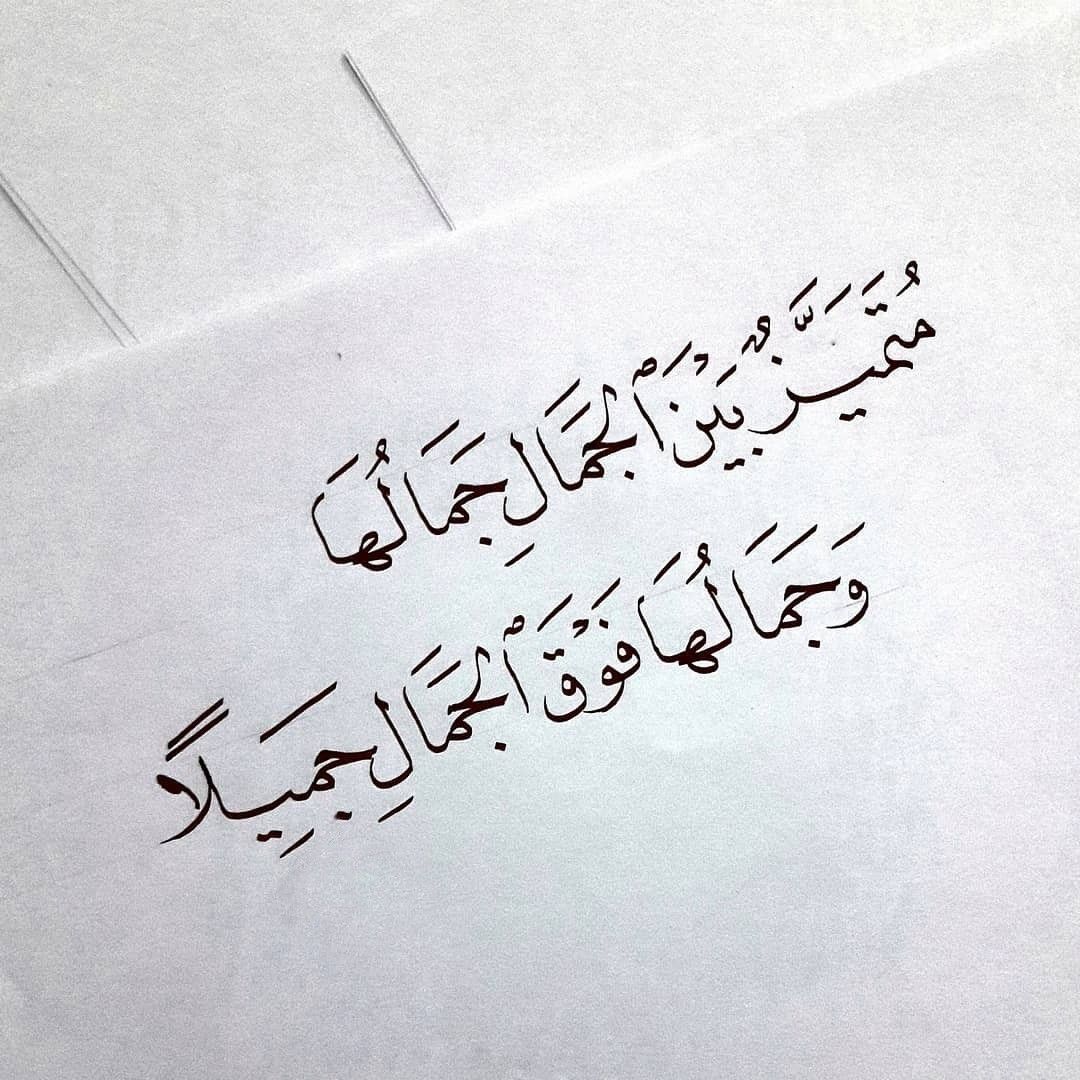 مُتَمَيَّزٌ بَيْنَ ٱلْجَمَالِ جَمَالُهَا
وَجَمَالُهَا فَوْقَ ٱلْجَمَالِ جَمِيَلًا